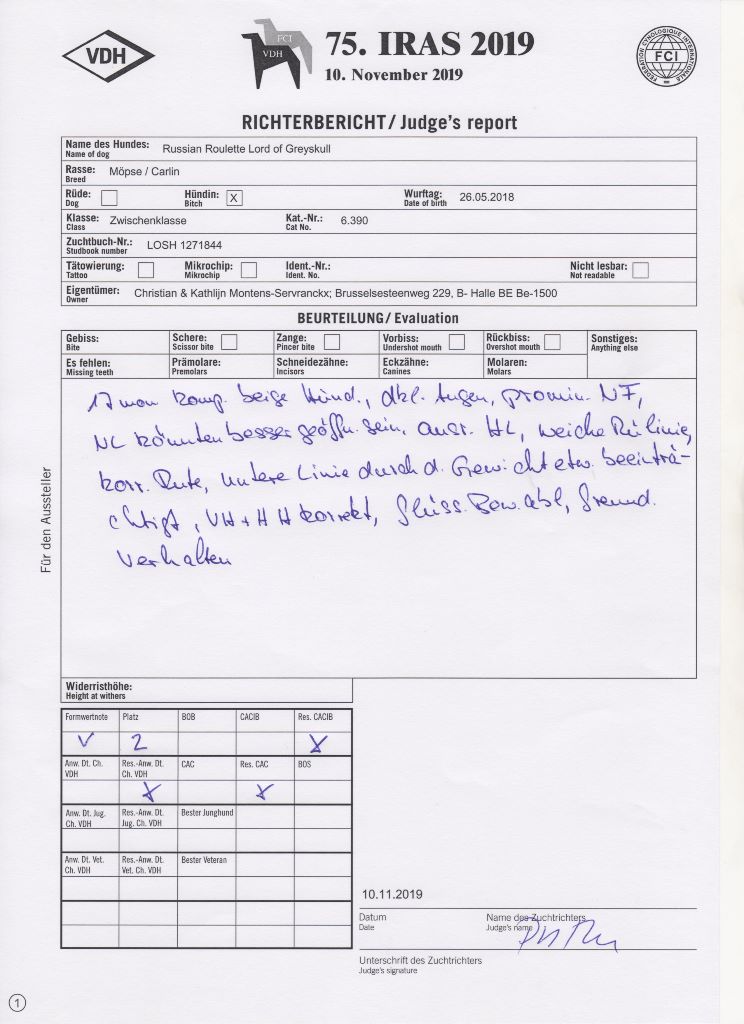 VDH
FCI
VDH
75. IRAS 2019
10. November 2019
FEDERATION CYNOLOGIQUE INTERNATIONALE
FCI
RICHTERBERICHT / Judge's report
Name des Hundes: Russian Roulette Lord of Greyskull
Name of dog
Rasse: Möpse / Carlin
Breed
Rüde: Hündin: X Wurftag: 26.05.2018
Dog Bitch Date of birth
Klasse: Zwischenklasse Kat.-Nr.: 6.390
Class Cat No.
Zuchtbuch-Nr.: LOSH 1271844
Studbook number
Tätowierung: Mikrochip: Ident.-Nr.: Nicht lesbar:
Tattoo Mikrochip Ident. No. Not readable
Eigentümer: Christian & Kathlijn Montens-Servranckx; Brusselsesteenweg 229, B- Halle BE Be-1500
Owner
BEURTEILUNG / Evaluation
Gebiss: Schere: Zange: Vorbiss: Rückbiss: Sonstiges:
Bite Scissor bite Pincer bite Undershot mouth Overshot mouth Anything else
Es fehlen: Prämolare: Schneidezähne: Eckzähne: Molaren:
Missing teeth Premolars Incisors Canines Molars
17 mon komp. beige Hünd., dkl. Augen, promin. NF,
NL könnten besser geöffn. sein, ausr. HL, weiche Rü linie,
korr. Rute, untere Linie durch d. Gewicht etw. beeinträ-
chtigt, VH + HH korrekt, flüss. Bew.abl, freund.
Verhalten
Für den Aussteller
Widerristhöhe:
Height at withers
Formwertnote Platz BOB CACIB Res. CACIB
V 2 X
Anw. Dt. Ch. VDH Res.-Anw. Dt. Ch. VDH CAC Res. CAC BOS
X X
Anw. Dt. Jug. Ch. VDH Res.-Anw. Dt. Jug. Ch. VDH Bester Junghund
Anw. Dt. Vet. Ch. VDH Res.-Anw. Dt. Vet. Ch. VDH Bester Veteran
10.11.2019
Datum Name des Zuchtrichters
Date Judge's name
Unterschrift des Zuchtrichters
Judge's signature
1